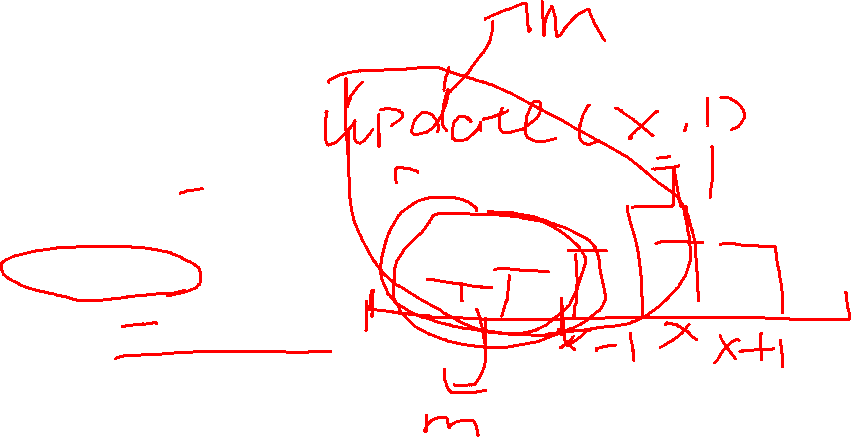 m
update(x,1)
x-1 x x+1
m